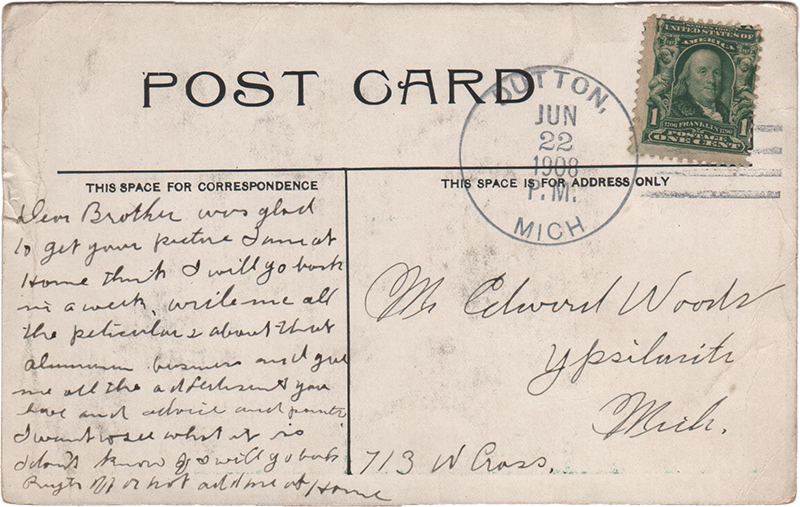 POST CARD
DUTTON,
JUN
22
1908
P.M.
MICH
UNITED STATES OF
AMERICA
1 1
FRANKLIN
POSTAGE
ONE CENT
THIS SPACE FOR CORRESPONDENCE
Dear Brother was glad
to get your picture I am at
Home think I will go back
in a week, write me all
the peticulars about that
aluminum business and give
me all the you
have and advice and points
I want to see what it is
I don't know if I will go back
or not add me at Home
THIS SPACE IS FOR ADDRESS ONLY
Mr Edward Woods
Ypsilanti
Mich.
713 W Cross